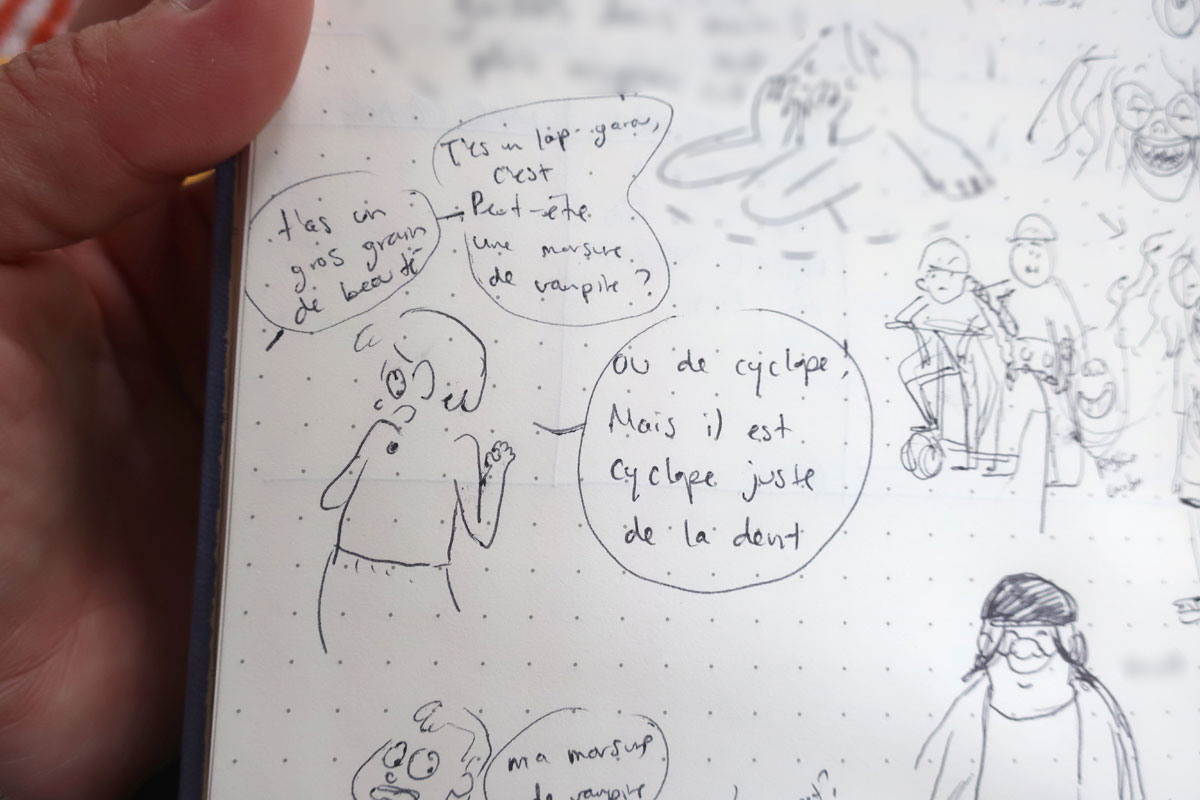 t'as un
gros grain
de beauté
T'es un lop-garou,
c'est
Peut-être
une morsure
de vampire ?
ou de cyclope !
Mais il est
cyclope juste
de la dent
ma morsure
de vampire